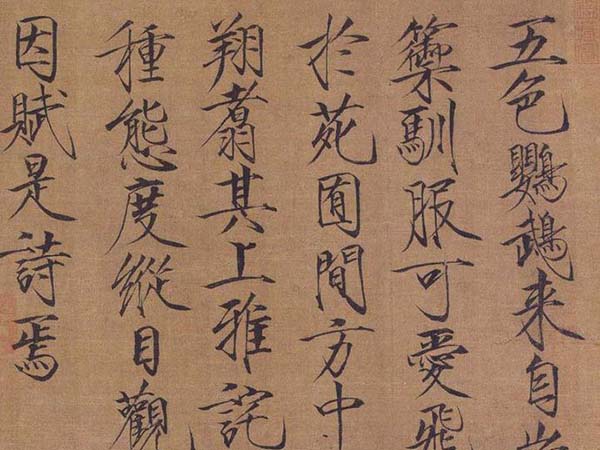 五色鸚鵡来自
籞馴服可愛飛
於苑囿間方中
翔翥其上雅詫
種態度縱目觀
因賦是詩焉